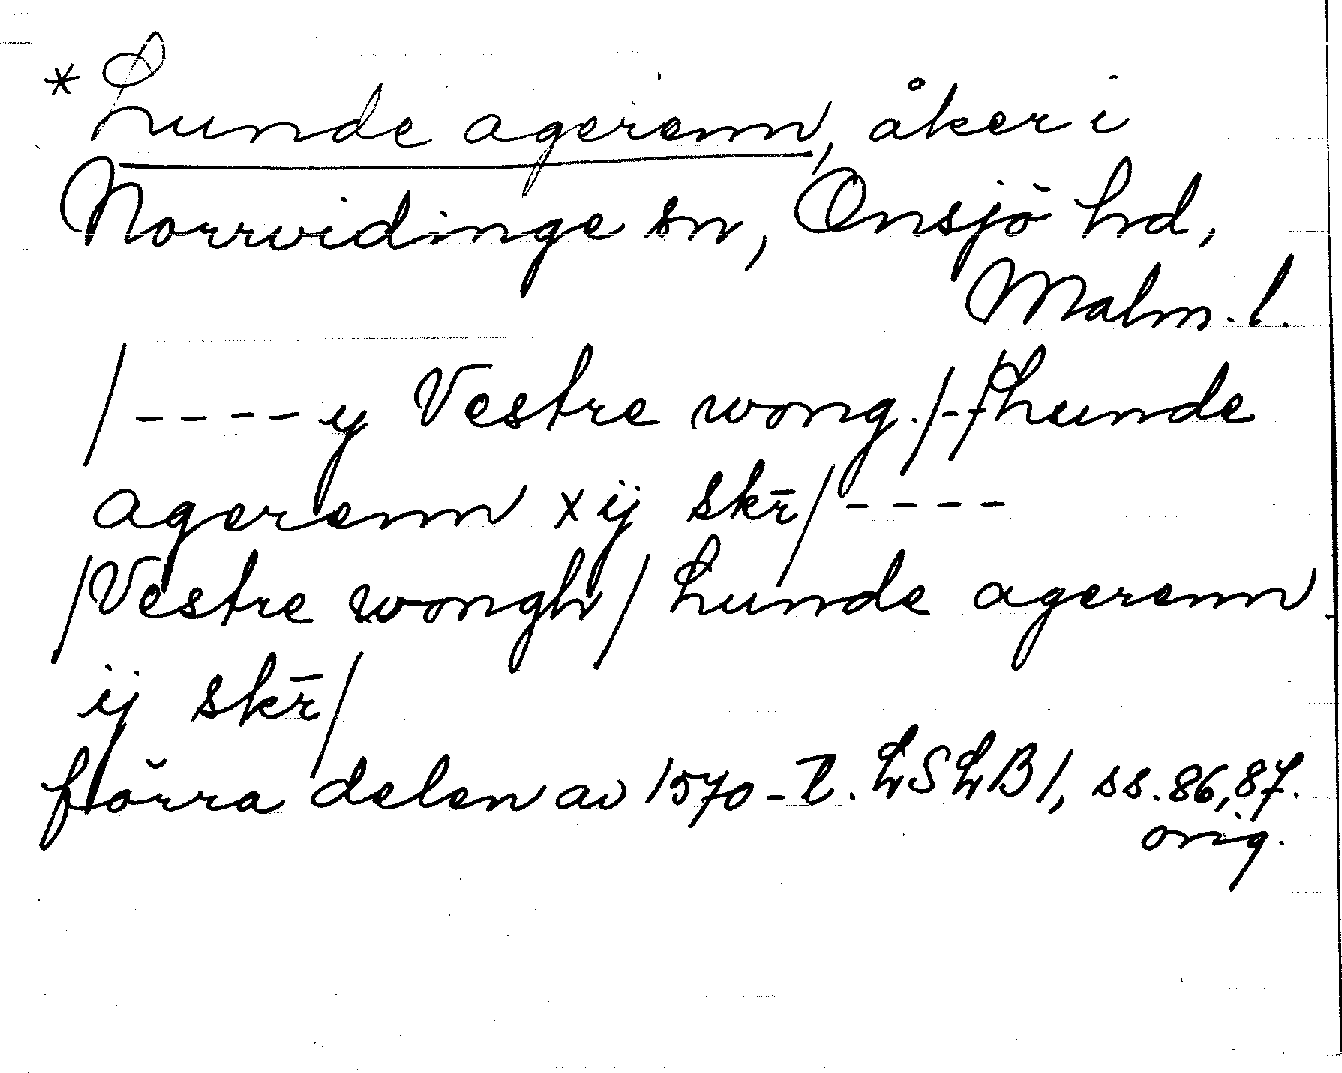 * Lunde agerenn, åker i
Norrvidinge sn, Onsjö hd,
Malm. l.
/ - - - - y Vestre wong. /-/ Lunde
agerenn xij skr̄ / - - - -
/ Vestre wongh / Lunde agerenn
ij skr̄ /
förra delen av 1570-t. LSLB 1, ss. 86, 87.
orig.